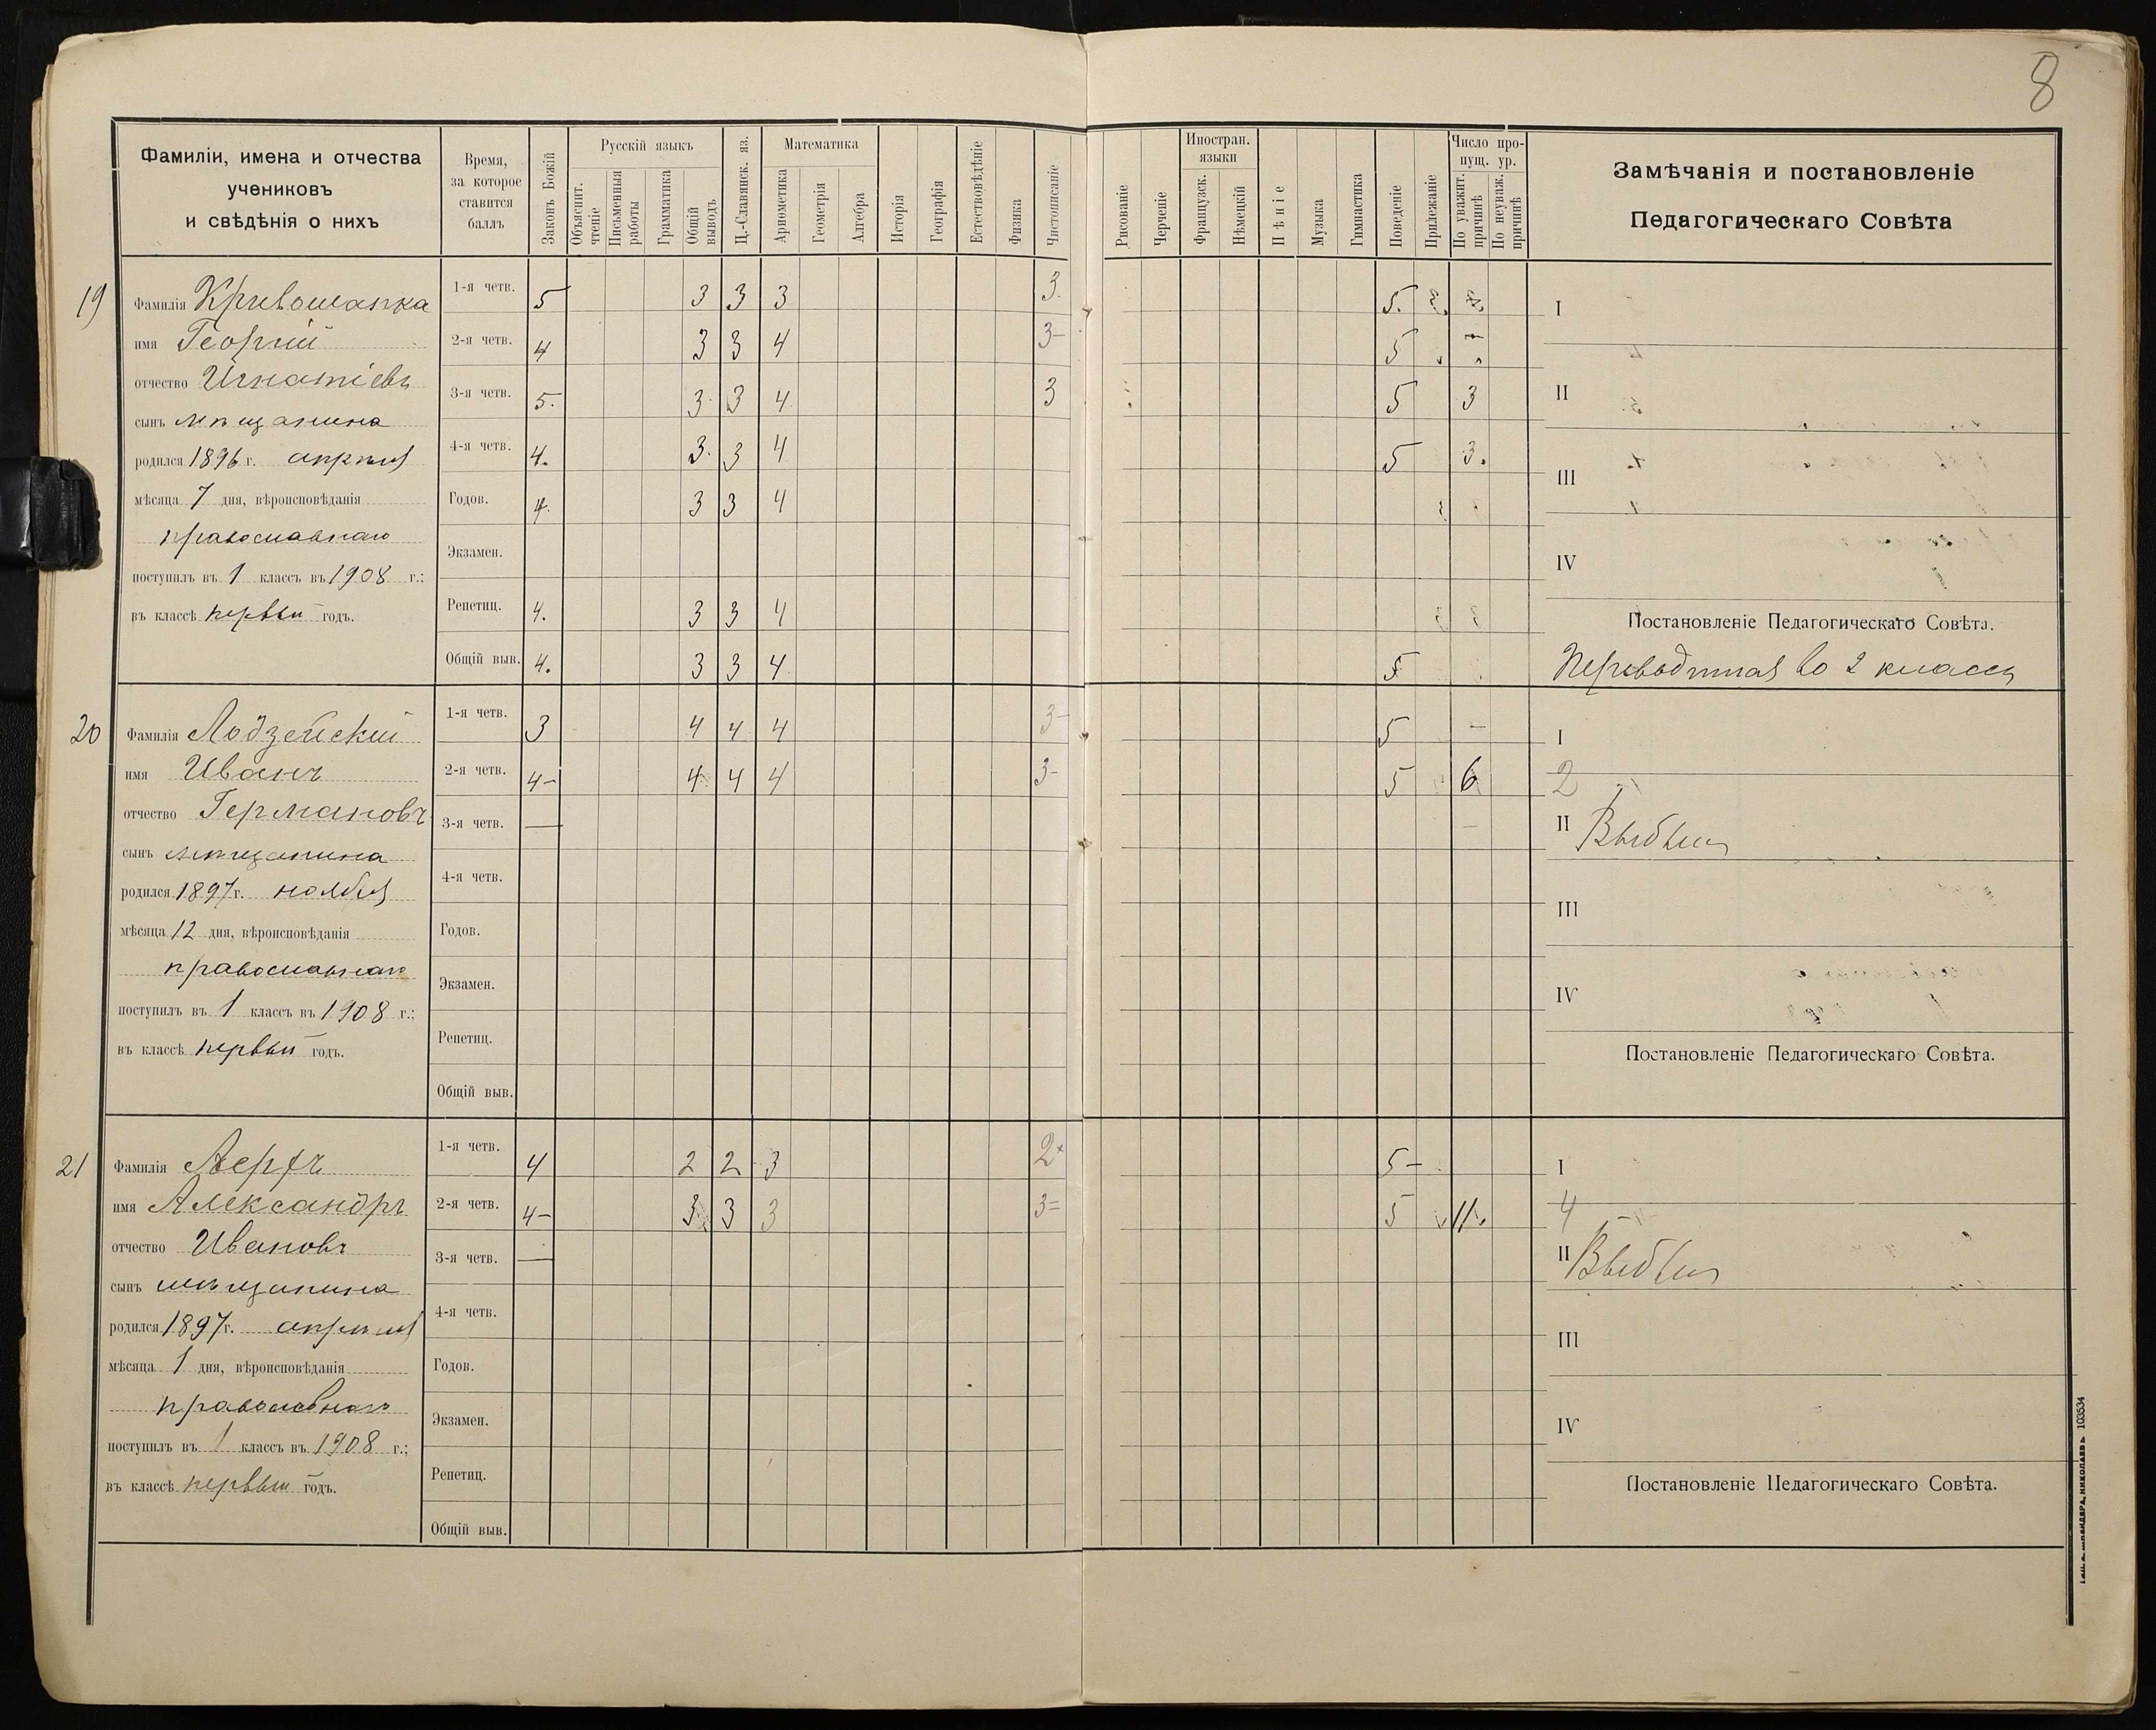 8
Фамиліи, имена и отчества
учениковъ
и свѣдѣнія о нихъ
Время,
за которое
ставится
баллъ
Законъ Божій
Русскій языкъ
Объяснит.
чтеніе
Письменныя
работы
Грамматика
Общій
выводъ
Ц.-Славянск. яз.
Математика
Ариѳметика
Геометрія
Алгебра
Исторія
Географія
Естествовѣдѣніе
Физика
Чистописаніе
Рисованіе
Черченіе
Иностран.
языки
Французск.
Нѣмецкій
Пѣніе
Музыка
Гимнастика
Поведеніе
Прилежаніе
Число про-
пущ. ур.
По уважит.
причинѣ
По неуваж.
причинѣ
Замѣчанія и постановленіе
Педагогическаго Совѣта
19
Фамилія Кривошапка
имя Георгій
отчество Игнатіевъ
сынъ мѣщанина
родился 1896 г. апрѣля
мѣсяца 7 дня, вѣроисповѣданія
православнаго
поступилъ въ 1 классъ въ 1908 г.:
въ классѣ первый годъ.
1-я четв. 5 3 3 3 3. 5.
2-я четв. 4 3 3 4 3- 5
3-я четв. 5. 3. 3 4 3 5 3
4-я четв. 4. 3. 3 4 5 3.
Годов. 4. 3 3 4
Экзамен.
Репетиц. 4. 3 3 4
Общій выв. 4. 3 3 4 5
I
II
III
IV
Постановленіе Педагогическаго Совѣта.
Переводится во 2 классъ
20
Фамилія Лодзейскій
имя Иванъ
отчество Германовъ
сынъ мѣщанина
родился 1897 г. ноября
мѣсяца 12 дня, вѣроисповѣданія
православнаго
поступилъ въ 1 классъ въ 1908 г.;
въ классѣ первый годъ.
1-я четв. 3 4 4 4 3- 5 —
2-я четв. 4- 4 4 4 3- 5 6
3-я четв. —
4-я четв.
Годов.
Экзамен.
Репетиц.
Общій выв.
I
2
II Выбылъ
III
IV
Постановленіе Педагогическаго Совѣта.
21
Фамилія
имя Александръ
отчество Ивановъ
сынъ мѣщанина
родился 1897 г. апрѣля
мѣсяца 1 дня, вѣроисповѣданія
православнаго
поступилъ въ 1 классъ въ 1908 г.;
въ классѣ первый годъ.
1-я четв. 4 2 2 3 2+ 5-
2-я четв. 4- 3 3 3 3= 5 11
3-я четв. —
4-я четв.
Годов.
Экзамен.
Репетиц.
Общій выв.
I
4
II Выбылъ
III
IV
Постановленіе Педагогическаго Совѣта.
НИКОЛАЕВЪ 103534